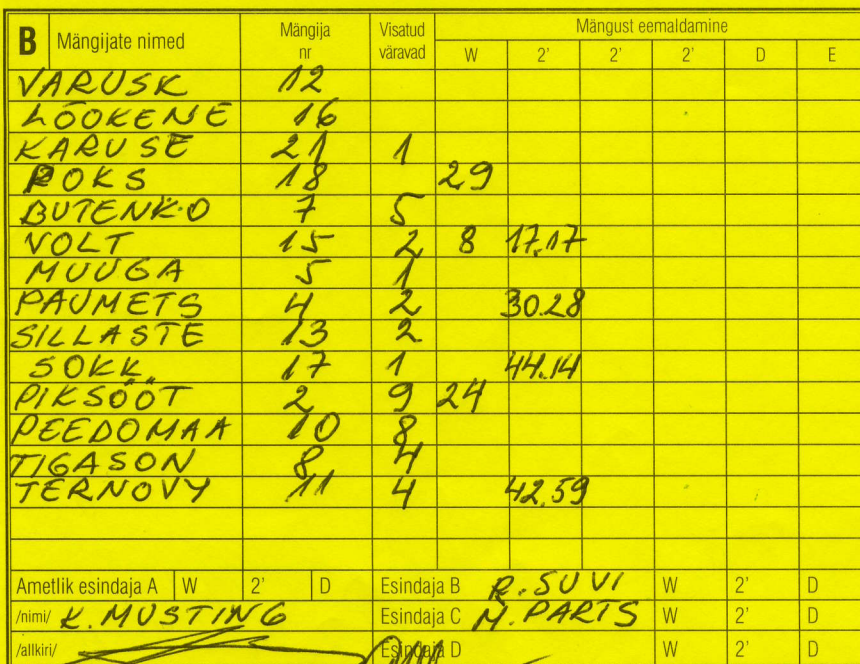 B Mängijate nimed Mängija nr Visatud väravad Mängust eemaldamine
W 2' 2' 2' D E
VARUSK 12
LÕOKENE 16
KARUSE 21 1
ROKS 18 29
BUTENKO 7 5
VOLT 15 2 8 17.17
MUUGA 5 1
PAUMETS 4 2 30.28
SILLASTE 13 2
SOKK 17 1 44.14
PIKSÖÖT 2 9 24
PEEDOMAA 10 8
TIGASON 8 4
TERNOVY 11 4 42.59
Ametlik esindaja A W 2' D Esindaja B R. SUVI W 2' D
/nimi/ K. MUSTING Esindaja C M. PARTS W 2' D
/allkiri/ Esindaja D W 2' D